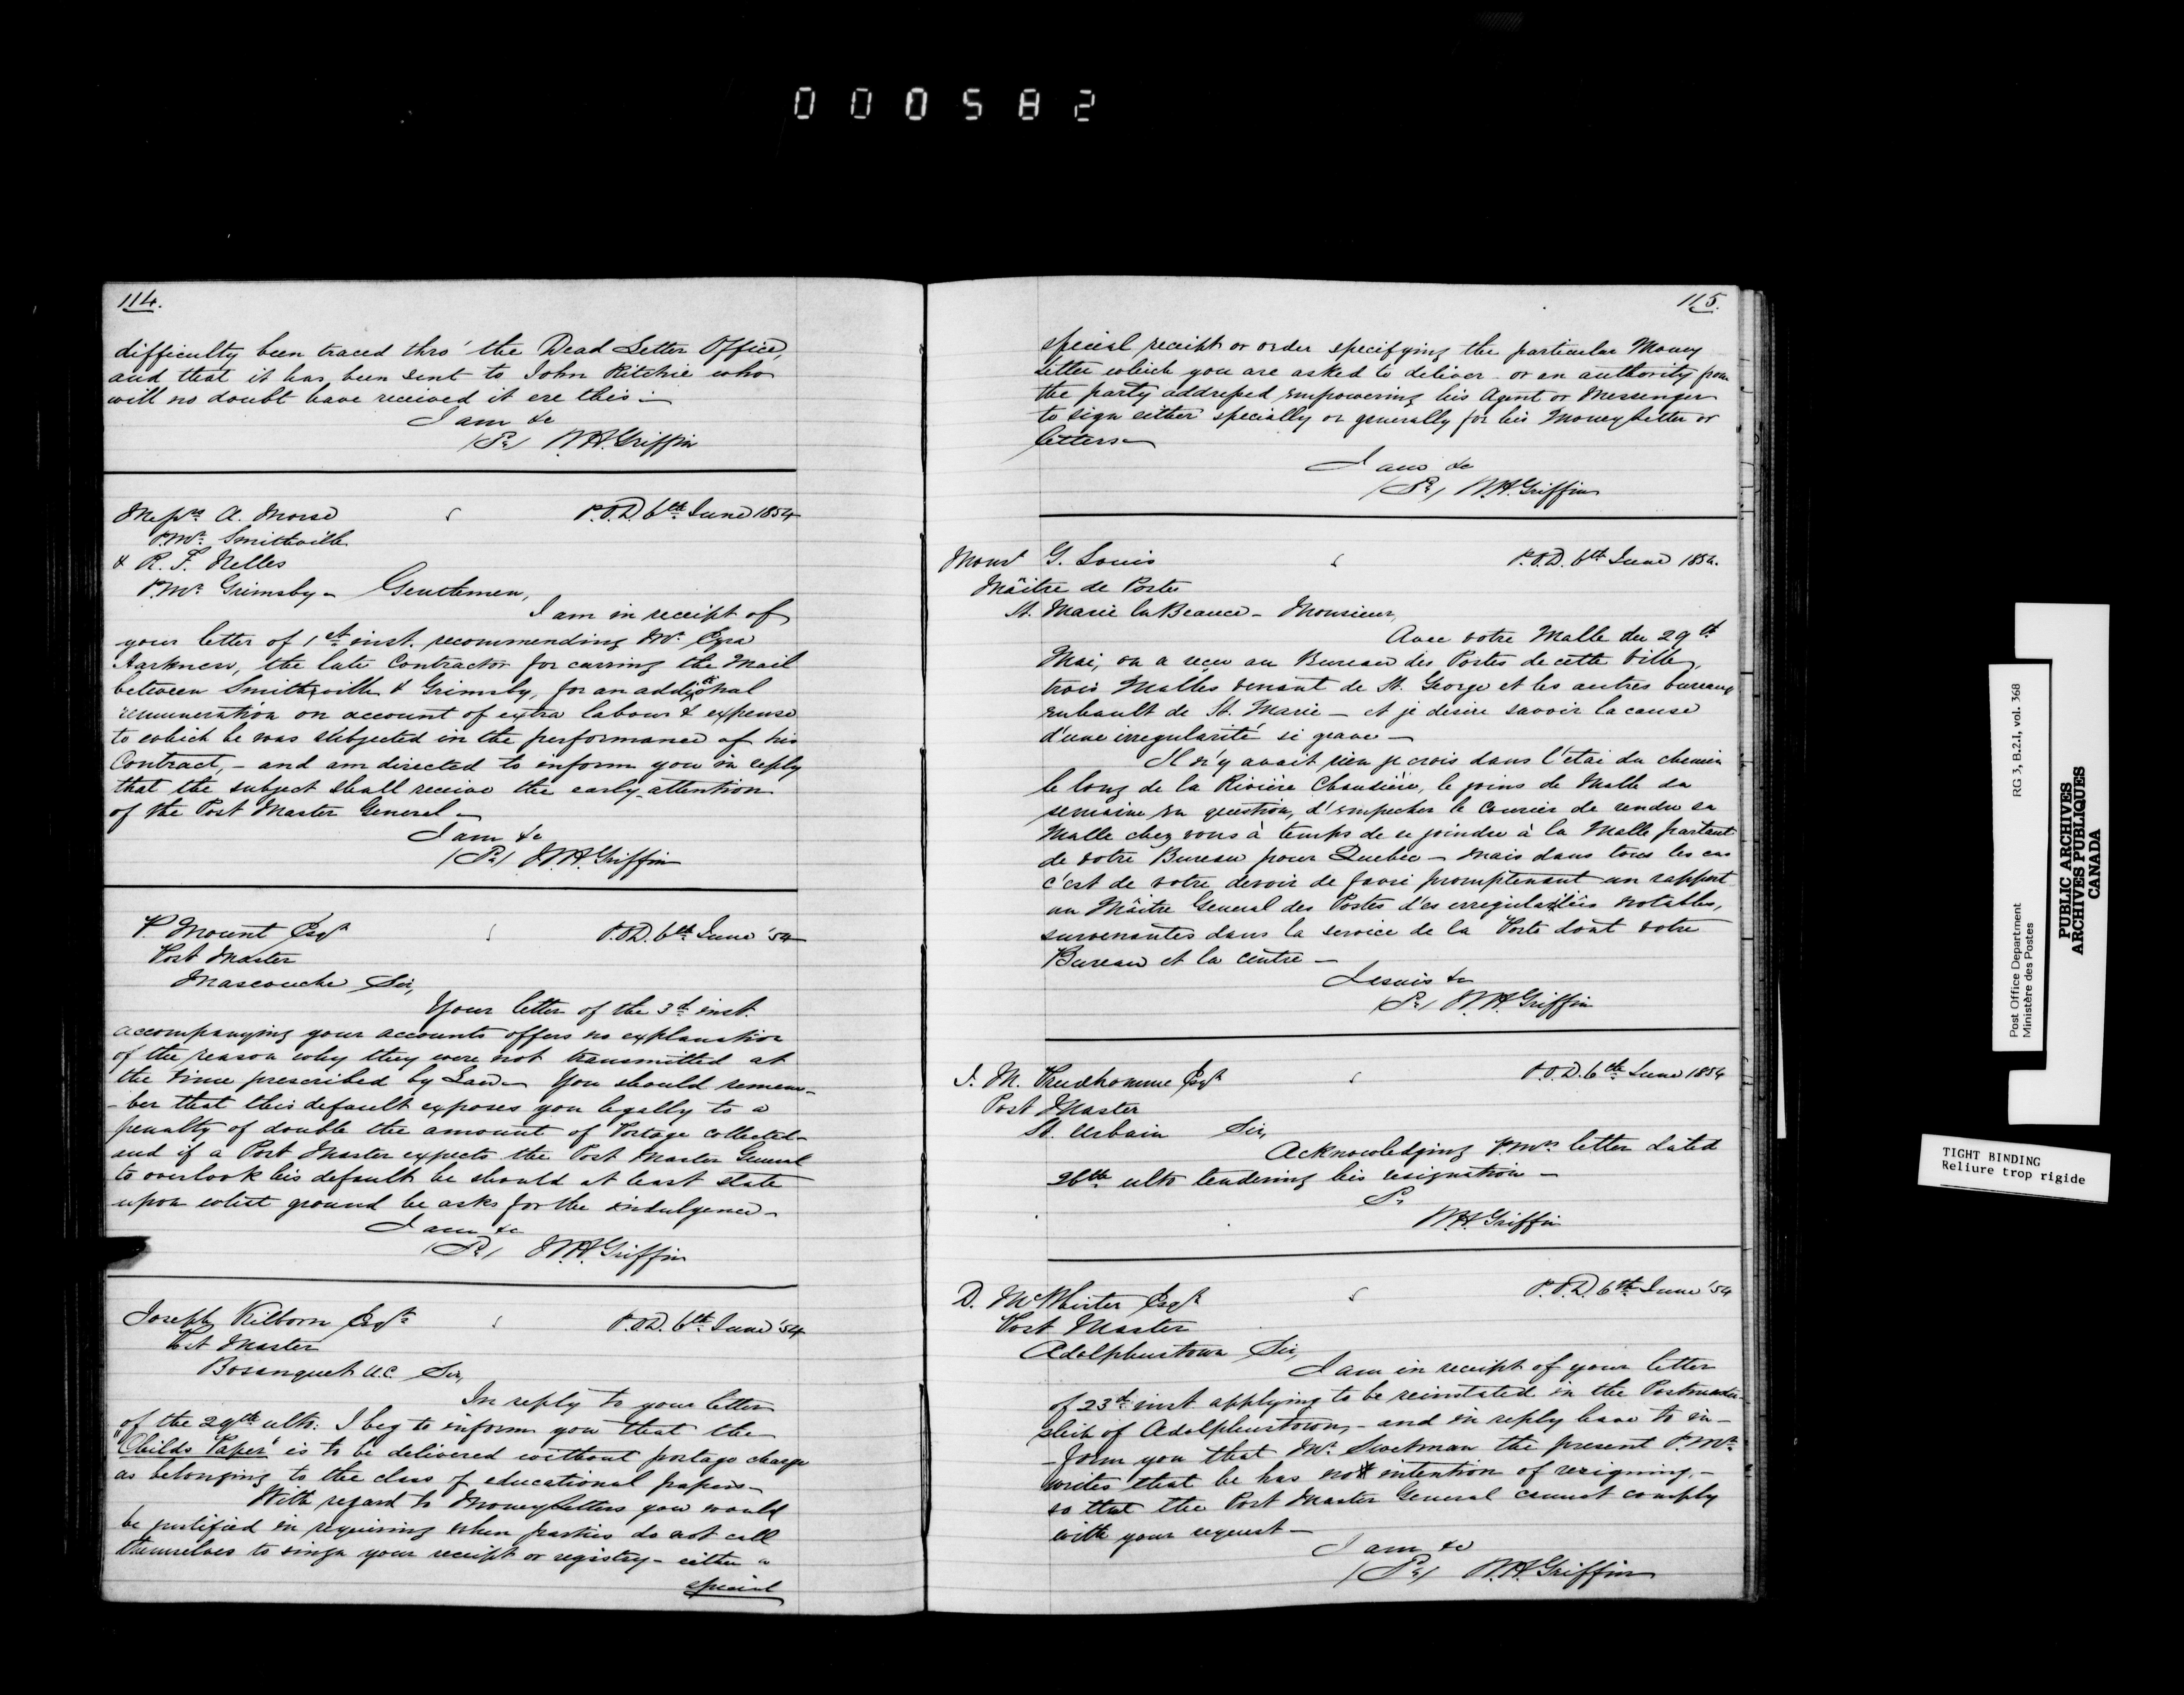 000582
114.
difficulty been traced thro' the Dead Letter Office,
and that it has been sent to John Ritchie who
will no doubt have received it ere this —
I am &c
W.H. Griffin
Messrs A. Morse
P.O.D. 6th June 1854
P.Mr. Smithville
& R. F. Nelles
P.Mr. Grimsby - Gentlemen,
I am in receipt of
your letter of 1st inst. recommending Mr. Ezra
Harkness, the late Contractor for carring the Mail
between Smithville & Grimsby, for an additional
remuneration on account of extra labour & expense
to which he was subjected in the performance of his
Contract, - and am directed to inform you in reply
that the subject shall receive the early attention
of the Post Master General -
I am &c
W.H. Griffin
P. Mount Esqr
P.O.D. 6th June '54
Post Master
Mascouche Sir,
Your letter of the 3d inst.
accompanying your accounts offers no explanation
of the reason why they were not transmitted at
the time prescribed by Law - You should remem-
-ber that this default exposes you legally to a
penalty of double the amount of Postage collected -
and if a Post Master expects the Post Master General
to overlook his default he should at least state
upon what ground he asks for the indulgence -
I am &c
W.H. Griffin
Joseph Kilborn Esqr
P.O.D. 6th June '54
Post Master
Bosanquet U.C. Sir,
In reply to your letter
of the 29th ulto: I beg to inform you that the
"Childs Paper" is to be delivered without postage charge
as belonging to the class of educational papers -
With regard to Money Letters you would
be justified in requiring when parties do not call
themselves to singn your receipt or registry - either a
special
115.
special receipt or order specifying the particular Money
letter which you are asked to deliver - or an authority from
the party addressed empowering his Agent or Messenger
to sign either specially or generally for his Money Letter or
letters -
I am &c
W.H. Griffin
Monsr G. Louis
P.O.D. 6th June 1854.
Mâitre de Poste
St. Marie la Beauce - Monsieur,
Avec votre Malle du 29th
Mai, on a reçu au Bureau des Postes de cette Ville,
trois Malles venant de St. George et les autres bureaux
enhault de St. Marie - et je desire savoir la cause
d'une irregularité si grave -
Il n'y avait rien je crois dans l'etat du chemin
le long de la Rivière Chaudière, le joins de Malle da
semaine en question, d'empecher le Courier de rendre sa
Malle chez vous à temps de se joindre à la Malle partant
de votre Bureau pour Quebec - mais dans tous les cas
c'est de votre devoir de faire promptenant un rapport
au Mâitre General des Postes d'es irregularities notables,
survenantes dans la service de la Poste dont votre
Bureau et la centre -
Jesuis &c
W.H. Griffin
J. M. Prudhomme Esqr
P.O.D. 6th June 1854
Post Master
St. Urbain Sir,
Acknowledging P.Mrs letter dated
26th ulto tendering his resignation -
W.H. Griffin
D. McWhirter Esqr
P.O.D. 6th June '54
Post Master
Adolphustown Sir,
I am in receipt of your letter
of 23d inst applying to be reinstated in the Postmaster-
ship of Adolphustown, - and in reply have to in-
-form you that Mr. Swetman the present P.Mr.
writes that he has no intention of resigning, -
so that the Post Master General cannot comply
with your request -
I am &c
W.H. Griffin
Post Office Department RG 3, B.2.1, vol. 368
Ministère des Postes
PUBLIC ARCHIVES
ARCHIVES PUBLIQUES
CANADA
TIGHT BINDING
Reliure trop rigide